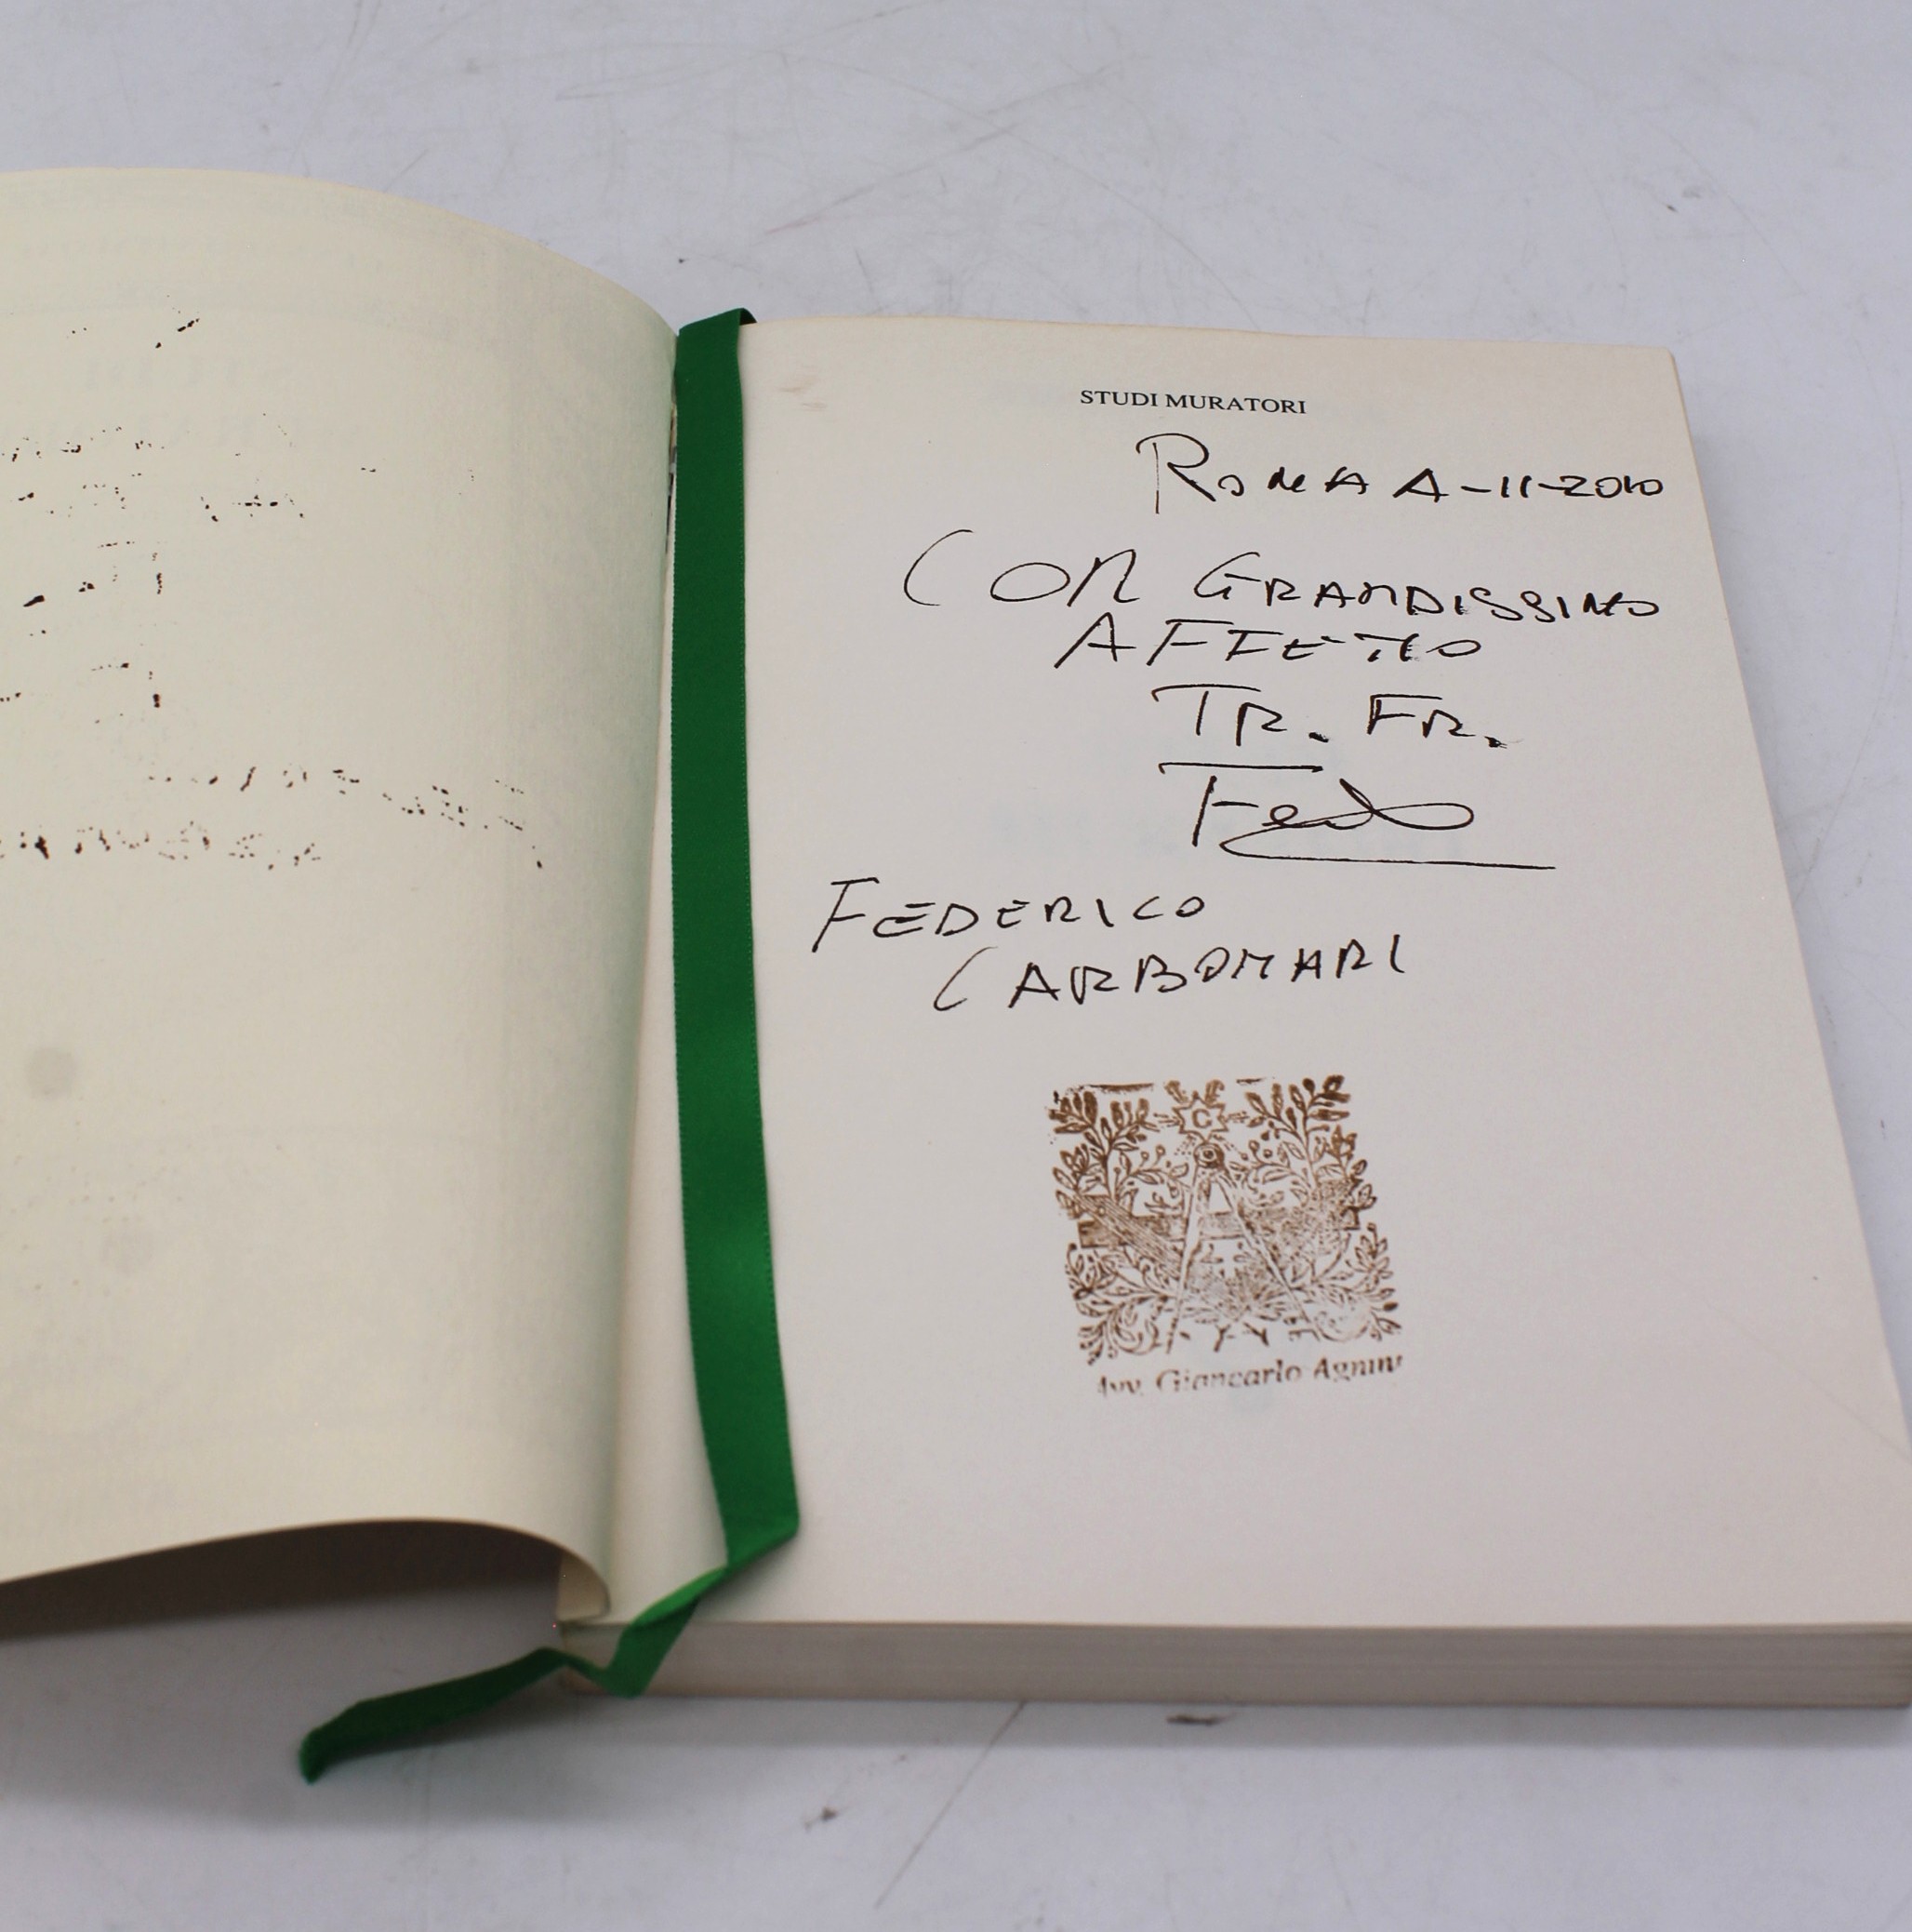 STUDI MURATORI
ROMA 4-11-2010
CON GRANDISSIMO
AFFETTO
TR. FR.
Fed
FEDERICO
CARBONARI
C
Avv. Giancarlo Agnini